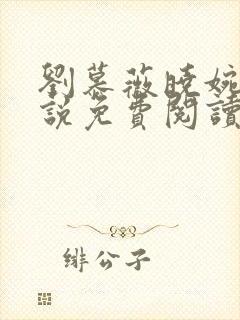 劉慕薇曉婉
說免費閱讀
緋公子